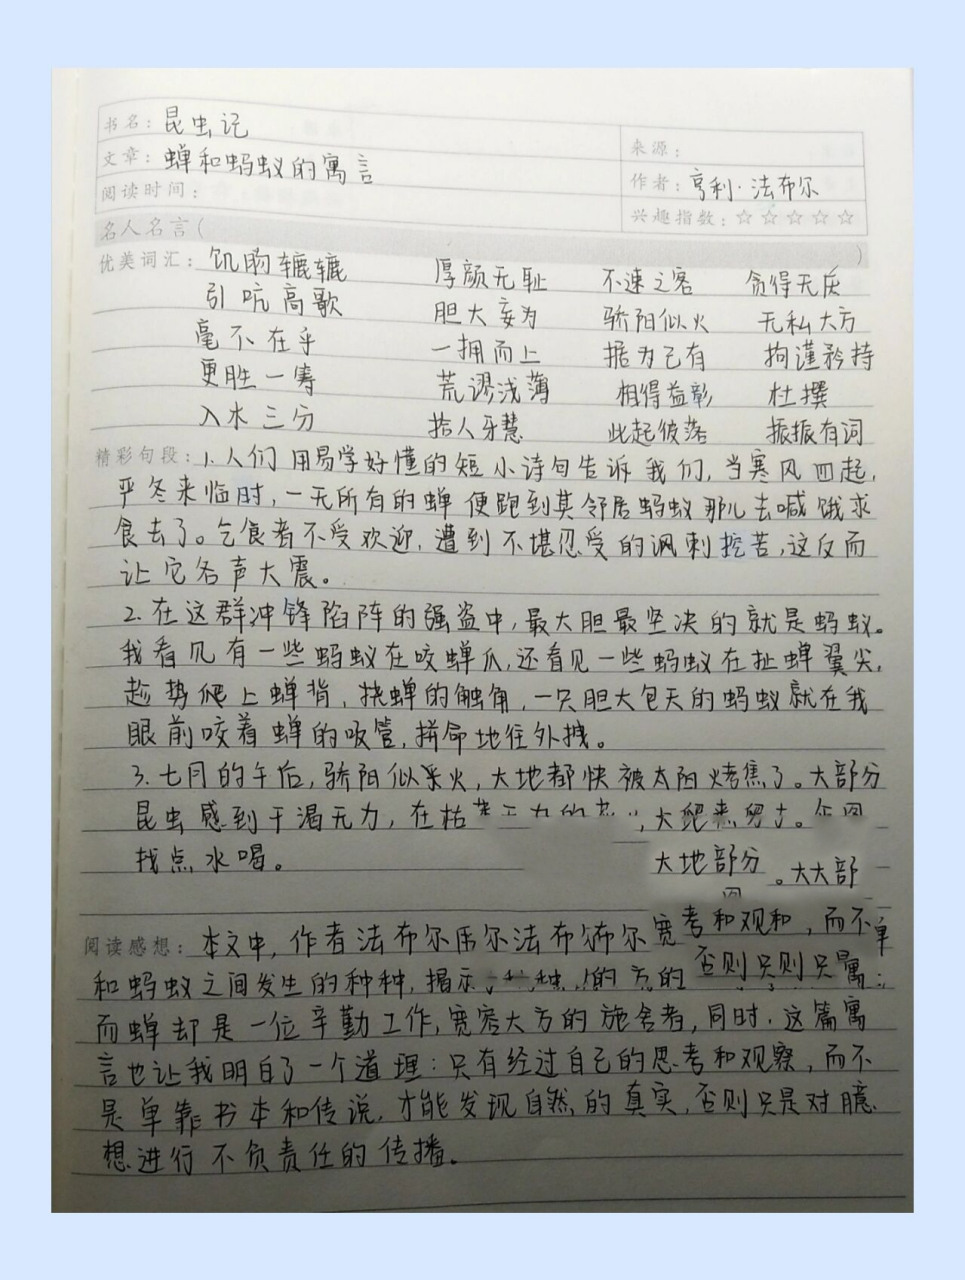 书名：昆虫记
文章：蝉和蚂蚁的寓言
来源：
阅读时间：
作者：亨利·法布尔
兴趣指数：☆☆☆☆☆
名人名言（ ）
优美词汇：饥肠辘辘 厚颜无耻 不速之客 贪得无厌
引吭高歌 胆大妄为 骄阳似火 无私大方
毫不在乎 一拥而上 据为己有 拘谨矜持
更胜一筹 荒谬浅薄 相得益彰 杜撰
入木三分 拾人牙慧 此起彼落 振振有词
精彩句段：1.人们用易学好懂的短小诗句告诉我们，当寒风四起，
严冬来临时，一无所有的蝉便跑到其邻居蚂蚁那儿去喊饿求
食去了。乞食者不受欢迎，遭到不堪忍受的讽刺挖苦，这反而
让它名声大震。
2.在这群冲锋陷阵的强盗中，最大胆最坚决的就是蚂蚁。
我看见有一些蚂蚁在咬蝉爪，还看见一些蚂蚁在扯蝉翼尖，
趁势爬上蝉背，挠蝉的触角，一只胆大包天的蚂蚁就在我
眼前咬着蝉的吸管，拼命地往外拽。
3.七月的午后，骄阳似采火，大地都快被太阳烤焦了。大部分
昆虫感到干渴无力，在枯
找点水喝。 大地部分。大大部
阅读感想：本文中，作者法布尔 尔法布 布尔宽考和观和，而不单
和蚂蚁之间发生的种种，揭示 的 的否则只则只寓；
而蝉却是一位辛勤工作，宽容大方的施舍者，同时，这篇寓
言也让我明白了一个道理：只有经过自己的思考和观察，而不
是单靠书本和传说，才能发现自然的真实，否则只是对臆
想进行不负责任的传播。